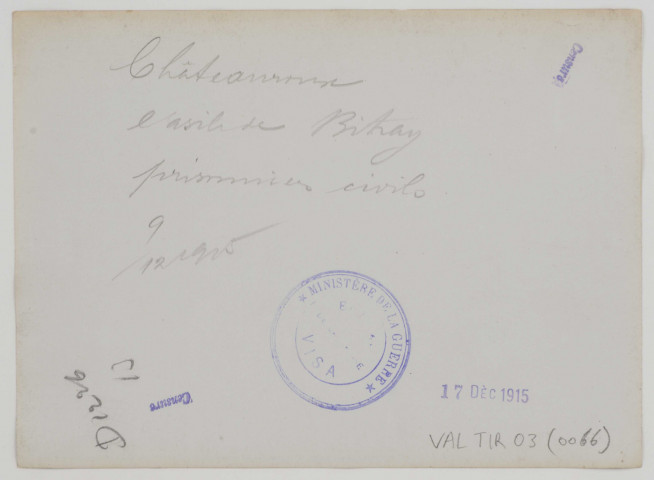 Châteauroux
l'asile de Bitray
prisonniers civils
9
/12 1915
Censuré
★ MINISTÈRE DE LA GUERRE ★
VISA
Censuré
17 DÉC 1915
VAL TIR 03 (0066)